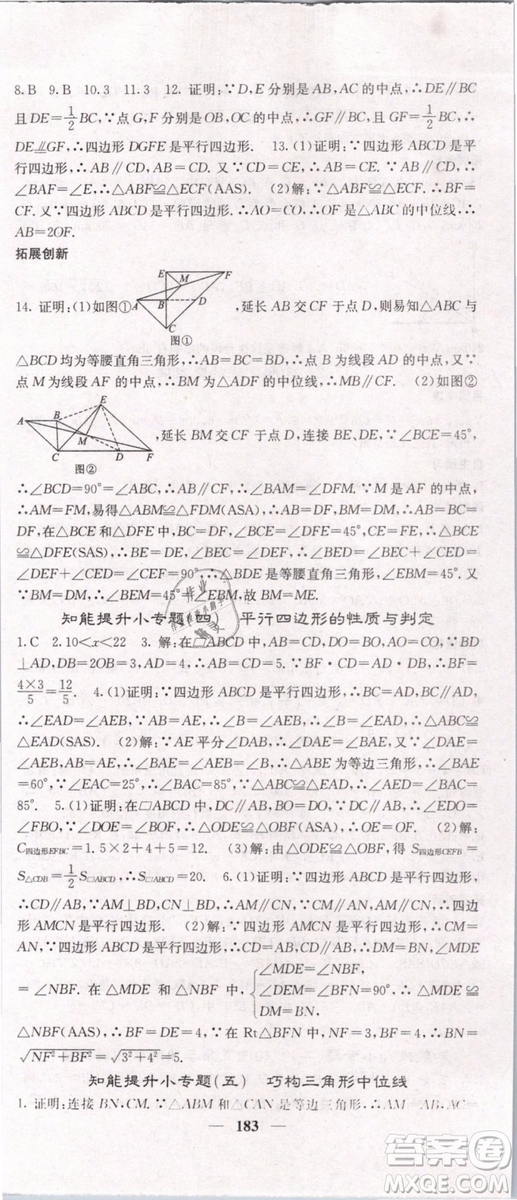 8.B 9.B 10.3 11.3 12. 证明：∵D，E分别是AB，AC的中点，∴DE∥BC
且DE=1/2BC，∵点G，F分别为OB，OC的中点，∴GF∥BC，且GF=1/2BC，∴
DE∥GF，∴四边形DGFE是平行四边形. 13.(1)证明：∵四边形ABCD是平
行四边形，∴AB∥CD，AB=CD. 又∵CD=CE，∴AB=CE. ∵AB∥CD，∴
∠BAF=∠E，∴△ABF≌△ECF(AAS). (2)解：∵△ABF≌△ECF，∴BF=
CF. 又∵四边形ABCD是平行四边形. ∴AO=CO，∴OF是△ABC的中位线，∴
AB=2OF.
拓展创新
E F M A B D C
14. 证明：(1)如图①，延长AB交CF于点D，则易知△ABC与
图①
△BCD均为等腰直角三角形，∴AB=BC=BD，∴点B为线段AD的中点，又∵
点M为线段AF的中点，∴BM为△ADF的中位线，∴BM∥CF. (2)如图②
E A B M C D F
，延长BM交CF于点D，连接BE，DE，∵∠BCE=45°，
图②
∴∠BCD=90°=∠ABC，∴AB∥CF，∴∠BAM=∠DFM. ∵M是AF的中点，
∴AM=FM，易得△ABM≌△FDM(ASA)，∴AB=DF，BM=DM，∴AB=BC=
DF，在△BCE和△DFE中，BC=DF，∠BCE=∠DFE=45°，CE=FE，∴△BCE≌
△DFE(SAS)，∴BE=DE，∠BEC=∠DEF，∴∠BED=∠BEC+∠CED=
∠DEF+∠CED=∠CEF=90°，∴△BDE是等腰直角三角形，又∵BM=DM，
∴BM=ME=1/2BD，故BM=ME.
知能提升小专题(四) 平行四边形的性质与判定
1.C 2.10<x<22 3. 解：在□ABCD中，AB∥CD，∴∠ABD=∠CDB=90°. ∵BO
⊥AD，AD=BC=5，∴BD=4. ∵△ABD的面积=1/2AB·BD=1/2AD·BH，∴BH=
4×3/5=12/5. 4.(1)证明：∵四边形ABCD是平行四边形，∴AD∥BC，AD=BC.
∴∠EAD=∠AEB，∵AB=AE，∴∠B=∠AEB，∴∠B=∠EAD，∴△ABC≌△
EAD(SAS). (2)解：∵AE平分∠DAB，∴∠DAE=∠BAE，又∵∠DAE=
∠AEB，∴∠BAE=∠AEB=∠B，∴△ABE为等边三角形，∴∠BAE
=60°，∵∠EAC=25°，∴∠BAC=85°，∵△ABC≌△EAD，∴∠AED=∠BAC=
85°. 5.(1)证明：∵在□ABCD中，AD∥BC，∴OD=OB，∴∠EDO=
∠FBO，∵∠DOE=∠BOF，∴△DOE≌△BOF(ASA)，∴OE=OF. (2)解：
C四边形EFBC=1.5×2+4+5=12. (3)解：由△DOE≌△BOF，得S四边形CEFB=
S△CDB=1/2S□ABCD，∴S□ABCD=20. 6.(1)证明：∵四边形ABCD是平行四边形，
∴CD∥AB，∵AM⊥BD，CN⊥BD，∴AM∥CN，∵CM∥AN，AM∥CN，∴四边形
AMCN是平行四边形. (2)解：∵四边形AMCN是平行四边形，∴CM=
AN，∵四边形ABCD是平行四边形，∴CD=AB，CD∥AB，∴DM=BN，∠MDE
=∠NBF. 在△MDE和△NBF中，{∠MDE=∠NBF，
∠DEM=∠BFN=90°，∴△MDE≌
DM=BN，
△NBF(AAS)，∴BF=DE=4，∴在Rt△BFN中，BN=
√(NF²+BF²)=√(3²+4²)=5.
知能提升小专题(五) 巧构三角形中位线
1. 证明：连接BN，CM，∵△ABM和△CAN是等腰直角三角形，∴AM=
183
答案圈
MXQE.COM